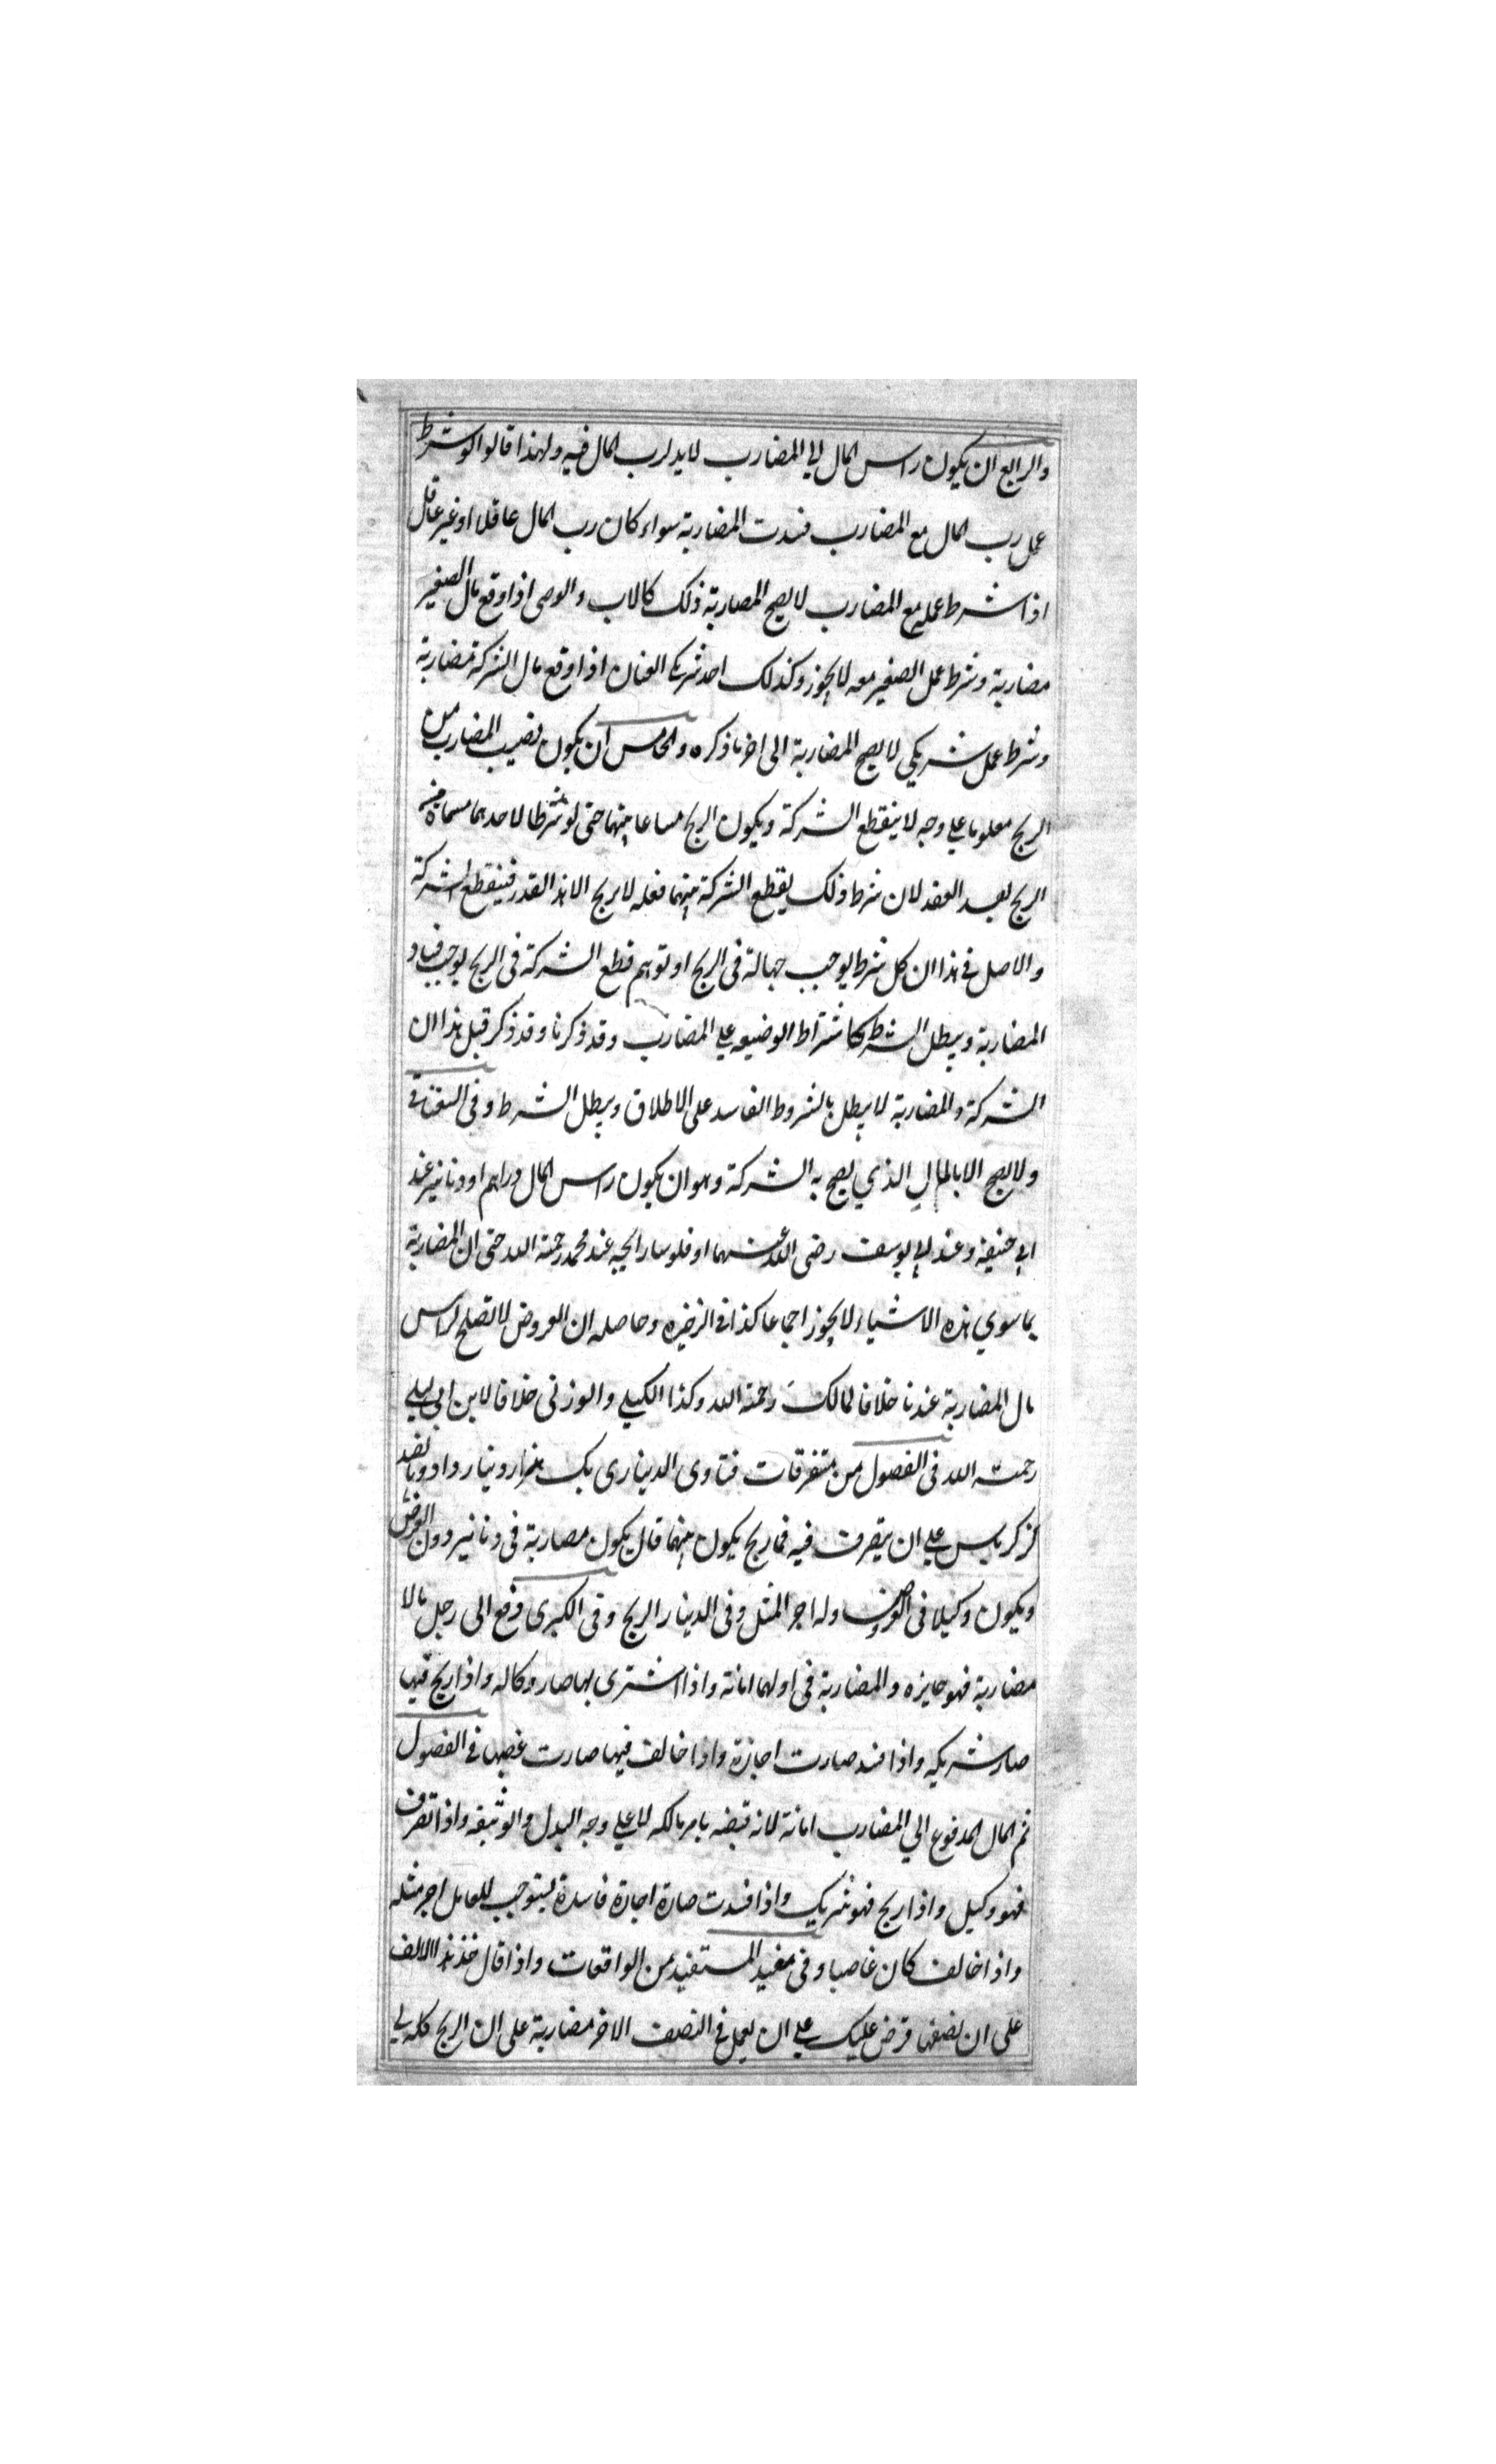 والرابع ان يكون راس المال الي المضارب لا يد لرب المال فيه ولهذا قالوا لو شرط
عمل رب المال مع المضارب فسدت المضاربة سواء كان رب المال عاقلا او غير عاقل
اذا شرط عمله مع المضارب لا يصح المضاربة ذلك كالاب والوصى اذا وقع مال الصغير
مضاربة وشرط عمل الصغير معه لا يجوز وكذلك احد شريكى العنان اذا وقع مال الشركة مضاربة
وشرط عمل شريكي لا يصح المضاربة الى اخر ما ذكره والخامس ان يكون نصيب المضارب من
الربح معلوما علي وجه لا ينقطع الشركة ويكون الربح مساعا بينهما حتى لو شرطا لاحدهما مسماة من
الربح بعد العقد لان شرط ذلك يقطع الشركة بينهما فعله لا يربح الا هذا القدر فينقطع الشركة
والاصل فى هذا ان كل شرط يوجب جهالة فى الربح او توهم قطع الشركة فى الربح يوجب فساد
المضاربة ويبطل الشرط كاشتراط الوضيعه علي المضارب وقد ذكرنا وقد ذكر قبل هذا ان
الشركة والمضاربة لا يبطل بالشروط الفاسد على الاطلاق ويبطل الشرط وفى السغناقى
ولا يصح الا بالمال الذي يصح به الشركة وهو ان يكون راس المال دراهم او دنانير عند
ابي حنيفه وعند ابي يوسف رضى الله عنهما او فلوسا رايجه عند محمد رحمة الله حتى ان المضاربة
بما سوي هذه الاشياء لا يجوز اجماعا كذا فى الذخيره وحاصله ان العروض لا تصلح لراس
مال المضاربة عندنا خلافا لمالك رحمة الله وكذا الكيلي والوزنى خلافا لابن ابى ليلي
رحمت الله فى الفصول من متفرقات فتاوى الدينارى يك هزار دينار داد وبانصد
كز كرباس علي ان يتصرف فيه فما ربح يكون بينهما قال يكون مضاربة فى دنانير دون العرض
ويكون وكيلا فى العروض وله اجر المثل وفى الدينار الربح وفى الكبرى دفع الى رجل مالا
مضاربة فهو جايزه والمضاربة فى اولها امانة واذا اشترى بها صار وكاله واذا ربح فيها
صار شريكه واذا فسد صارت اجازة واذا خالف فيها صارت غصبا فى الفصول
ثم المال المدفوع الي المضارب امانة لانه قبضه بامر مالكه لا علي وجه البدل والوثيقه واذا تصرف
فهو وكيل واذا ربح فهو شريك واذا فسدت صارة اجارة فاسدة يستوجب للعامل اجر مثله
واذا خالف كان غاصبا وفى مفيد المستفيد من الواقعات واذا قال خذ هذا الالف
على ان نصفها قرض عليك علي ان يعمل فى النصف الاخر مضاربة على ان الربح كله لي